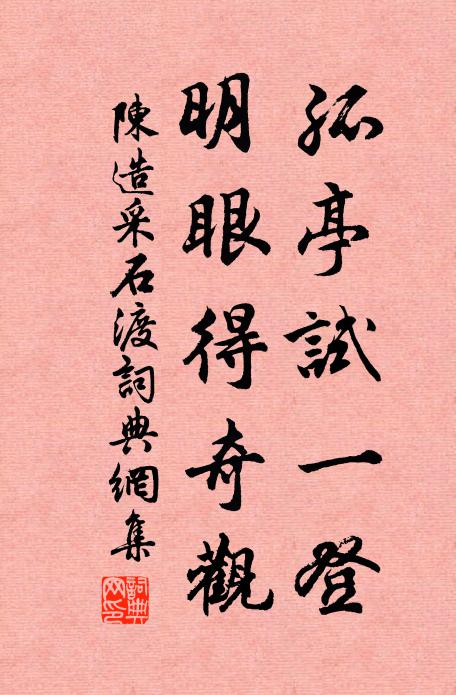 孤亭試一登
明眼得奇觀
陳造采石渡詞典網集
詞典網印